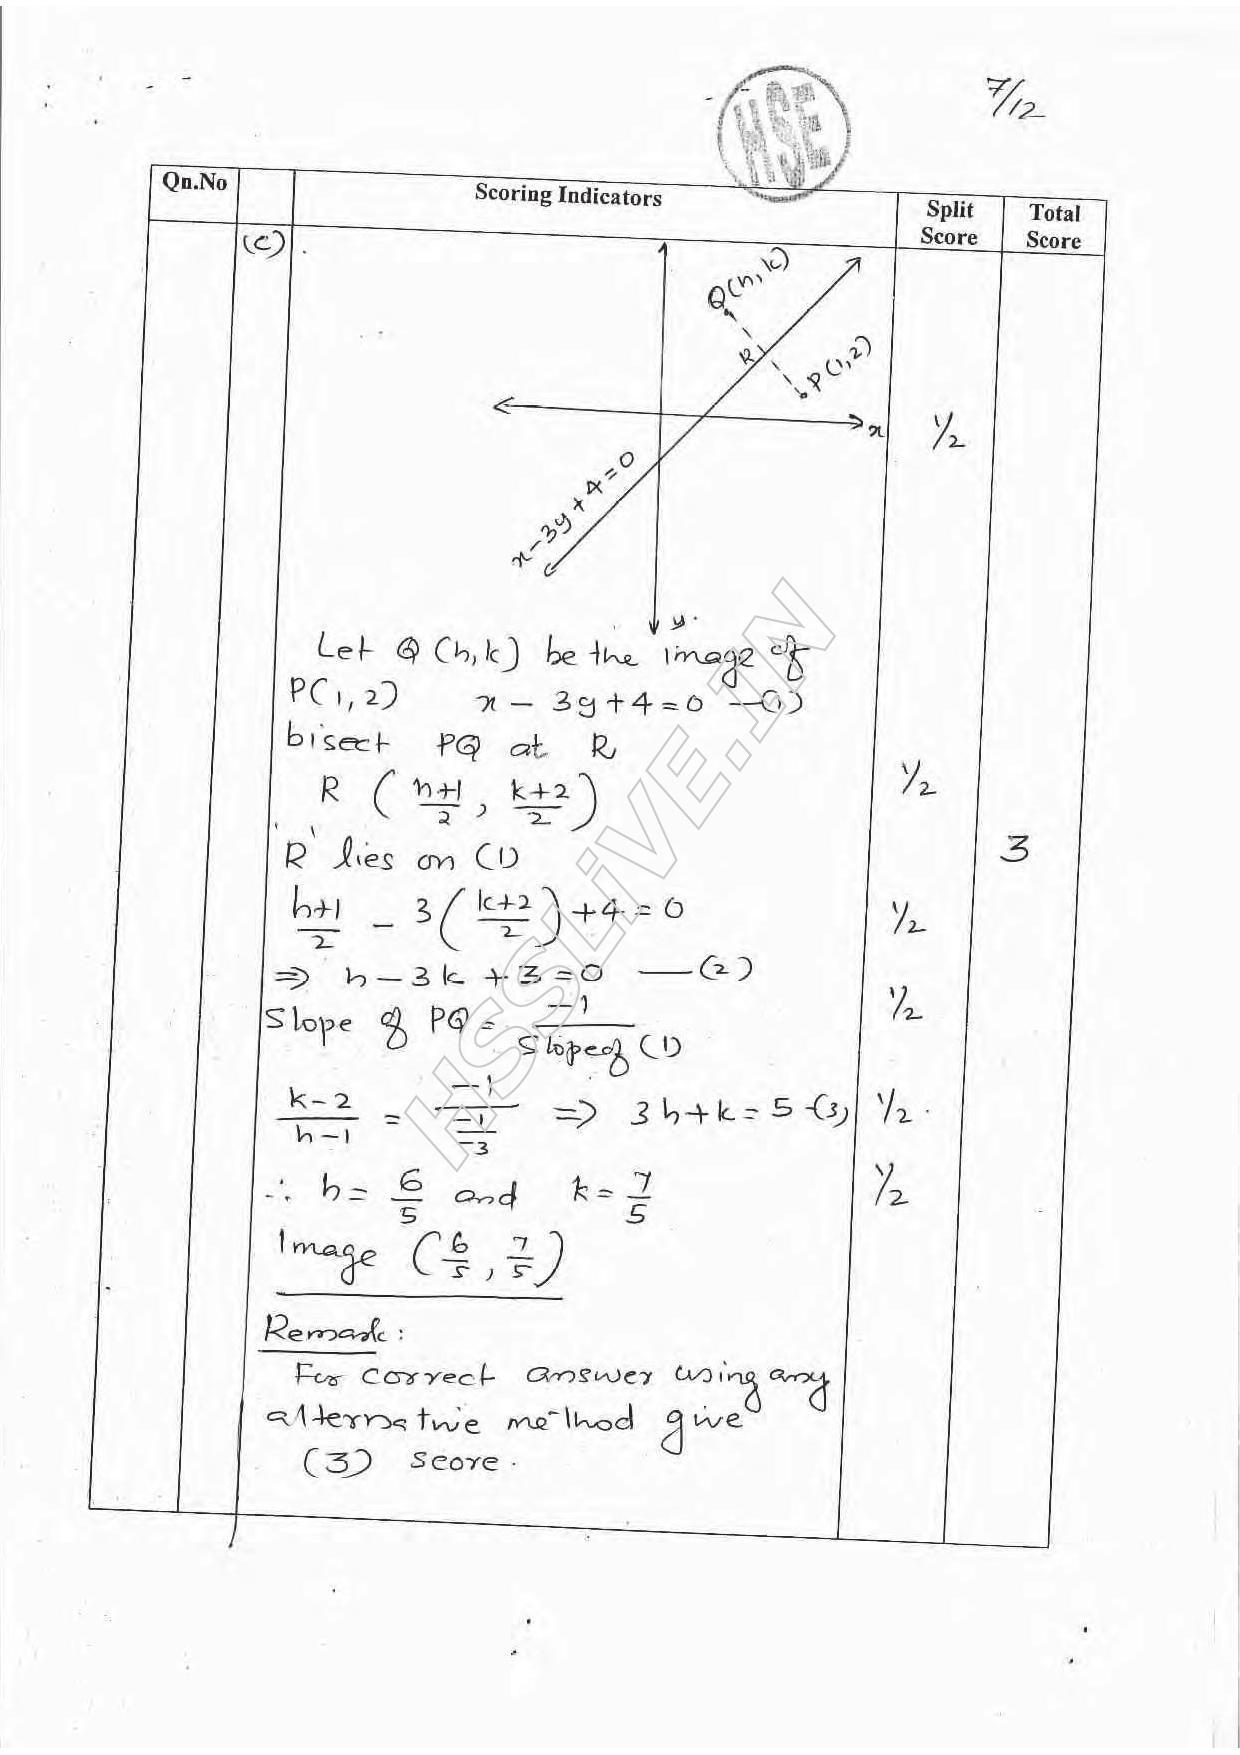 HSE
7/12
Qn.No Scoring Indicators Split Score Total Score
(c)
Q(h, k)
R
P(1,2)
x
x-3y+4=0
1/2
y.
Let Q (h,k) be the image of
P(1,2) x - 3y+4=0 —(1)
bisect PQ at R
R ( h+1/2 , k+2/2 ) 1/2
'R' lies on (1) 3
h+1/2 - 3( k+2/2 ) +4 = 0 1/2
⇒ h-3k+3=0 —(2)
Slope of PQ = -1/Slope of (1) 1/2
k-2/h-1 = -1/(-1/-3) ⇒ 3h+k=5 -(3) 1/2
∴ h= 6/5 and k= 7/5 1/2
Image ( 6/5 , 7/5 )
Remark:
For correct answer using any
alternative method give
(3) score.
HSSLiVE.IN